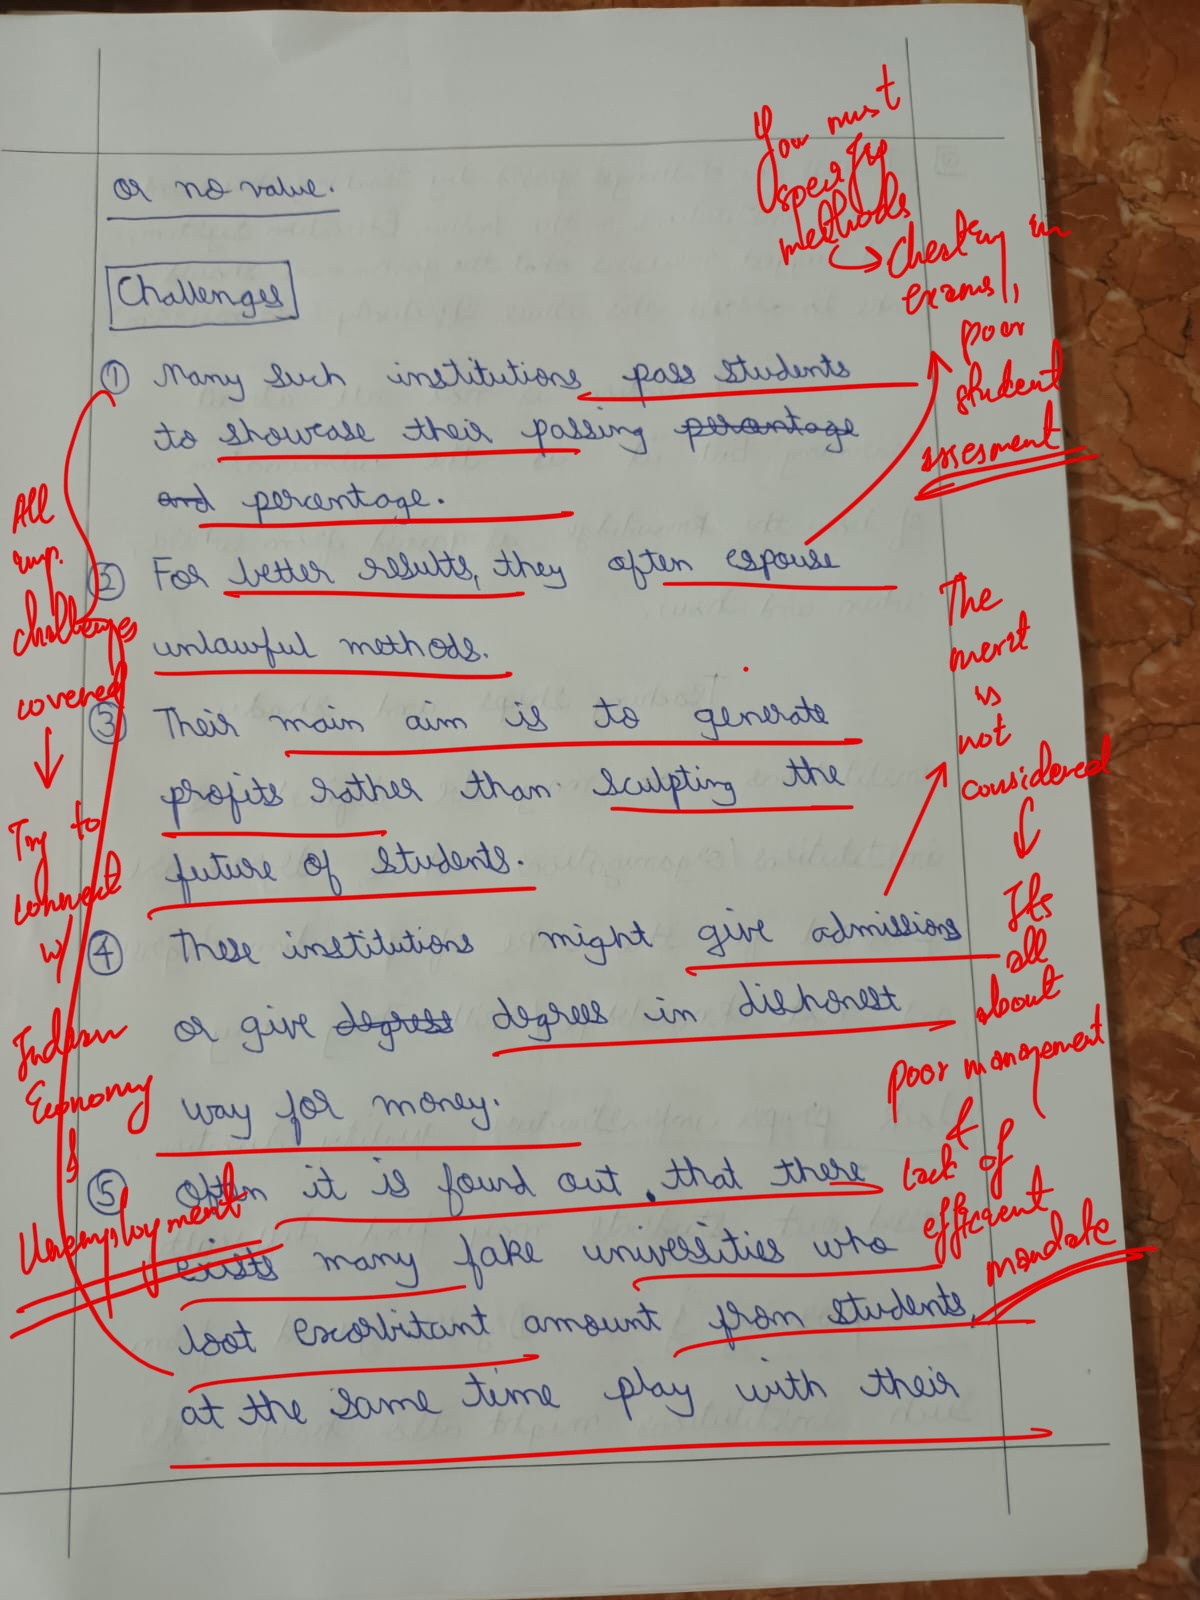 or no value.
Challenges
① Many such institutions pass students
to showcase their passing percentage
and percentage.
② For better results, they often espouse
unlawful methods.
③ Their main aim is to generate
profits rather than sculpting the
future of students.
④ These institutions might give admissions
or give degrees degrees in dishonest
way for money.
⑤ Often it is found out that there
exists many fake universities who
loot exorbitant amount from students,
at the same time play with their
You must
specify
methods
→ Cheating in
exams,
poor
student
assesment
The
merit
is
not
considered
Its
all
about
poor management
&
lack of
efficient
mandate
All
imp.
challenges
covered
Try to
connect
w/
Indian
Economy
&
Unemployment